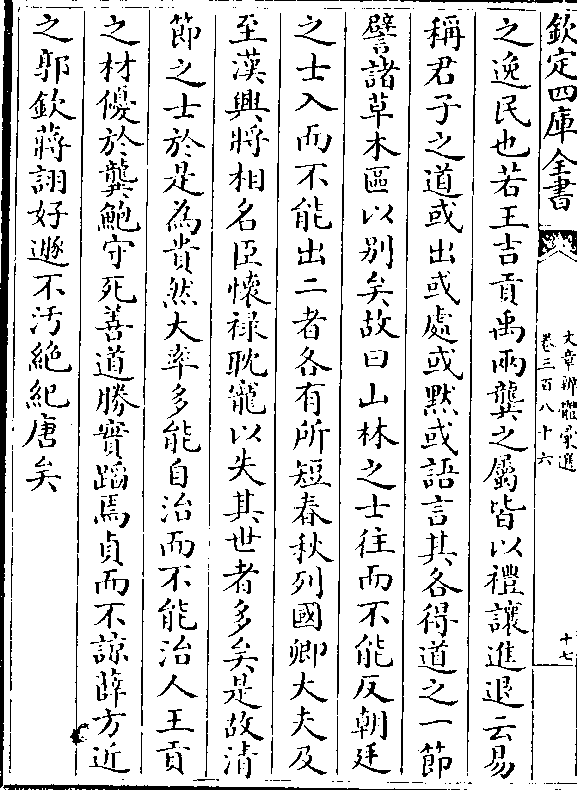 欽定四庫全書
文章辨體彙選
卷三百八十六
十七
之逸民也若王吉貢禹兩龔之屬皆以禮讓進退云易
稱君子之道或出或處或默或語言其各得道之一節
譬諸草木區以别矣故曰山林之士往而不能反朝廷
之士入而不能出二者各有所短春秋列國卿大夫及
至漢興將相名臣懷禄耽寵以失其世者多矣是故清
節之士於是為貴然大率多能自治而不能治人王貢
之材優於龔鮑守死善道勝實蹈焉貞而不諒薛方近
之郭欽蔣詡好遯不汚絶紀唐矣